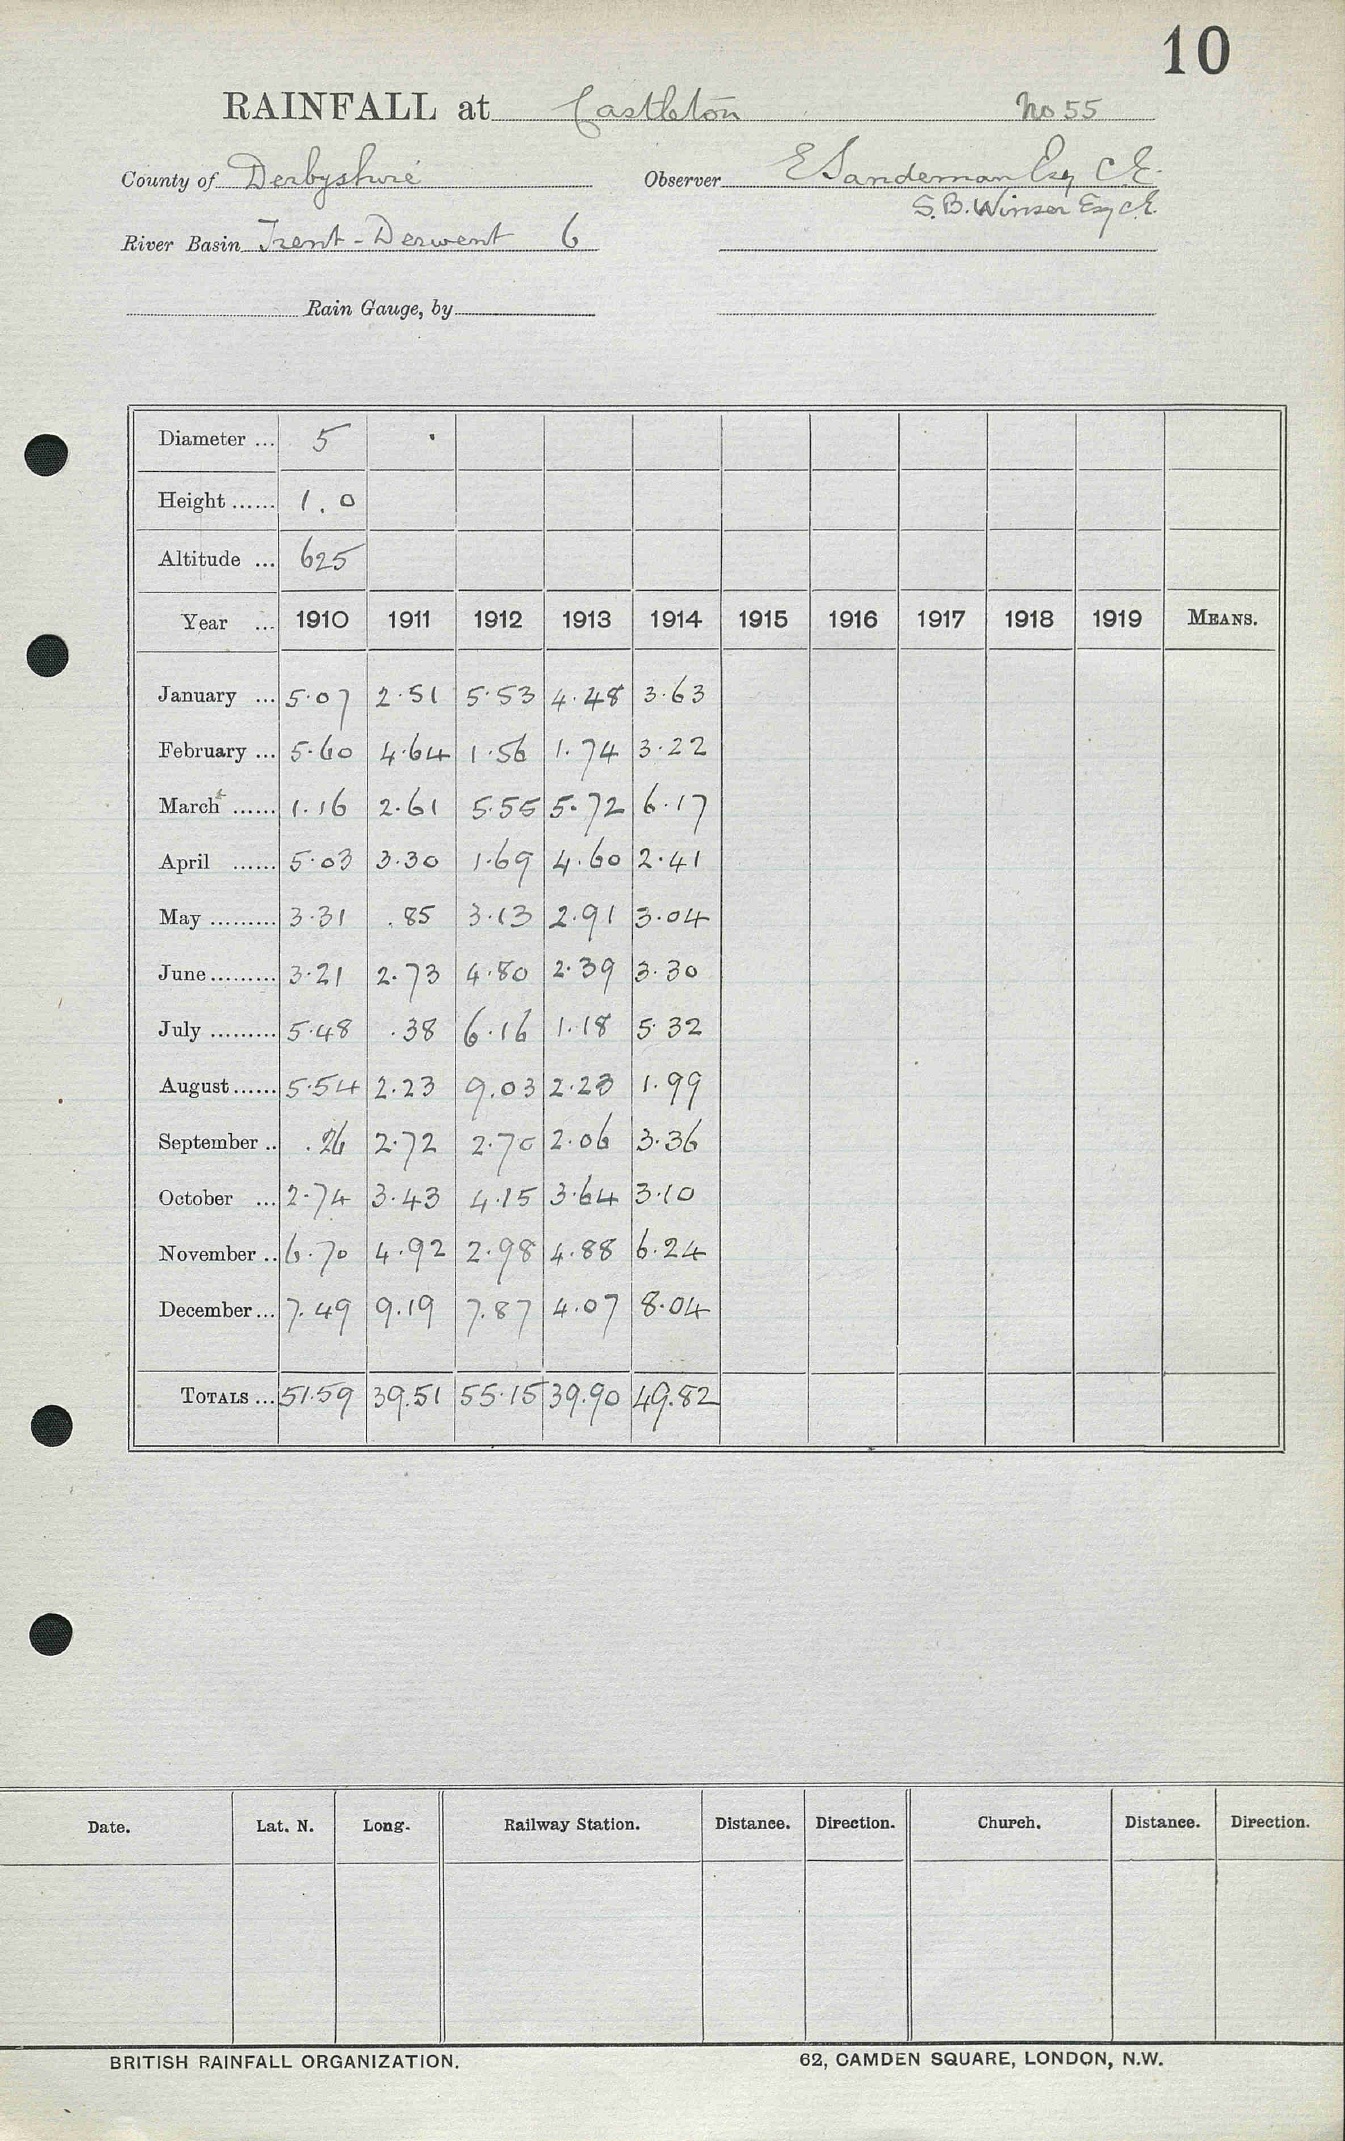 10
RAINFALL at Castleton No 55
County of Derbyshire Observer E Sandeman Esq C.E.
S.B. Winser Esq C.E.
River Basin Trent-Derwent 6
Rain Gauge, by
Diameter ... 5
Height ...... 1.0
Altitude ... 625
Year ... 1910 1911 1912 1913 1914 1915 1916 1917 1918 1919 MEANS.
January ... 5.07 2.51 5.53 4.48 3.63
February ... 5.60 4.64 1.56 1.74 3.22
March ...... 1.16 2.61 5.55 5.72 6.17
April ...... 5.03 3.30 1.69 4.60 2.41
May ......... 3.31 .85 3.13 2.91 3.04
June ......... 3.21 2.73 4.80 2.39 3.30
July ......... 5.48 .38 6.16 1.18 5.32
August ...... 5.54 2.23 9.03 2.23 1.99
September .. .26 2.72 2.70 2.06 3.36
October ... 2.74 3.43 4.15 3.64 3.10
November .. 6.70 4.92 2.98 4.88 6.24
December ... 7.49 9.19 7.87 4.07 8.04
TOTALS ... 51.59 39.51 55.15 39.90 49.82
Date. Lat. N. Long. Railway Station. Distance. Direction. Church. Distance. Direction.
BRITISH RAINFALL ORGANIZATION. 62, CAMDEN SQUARE, LONDON, N.W.